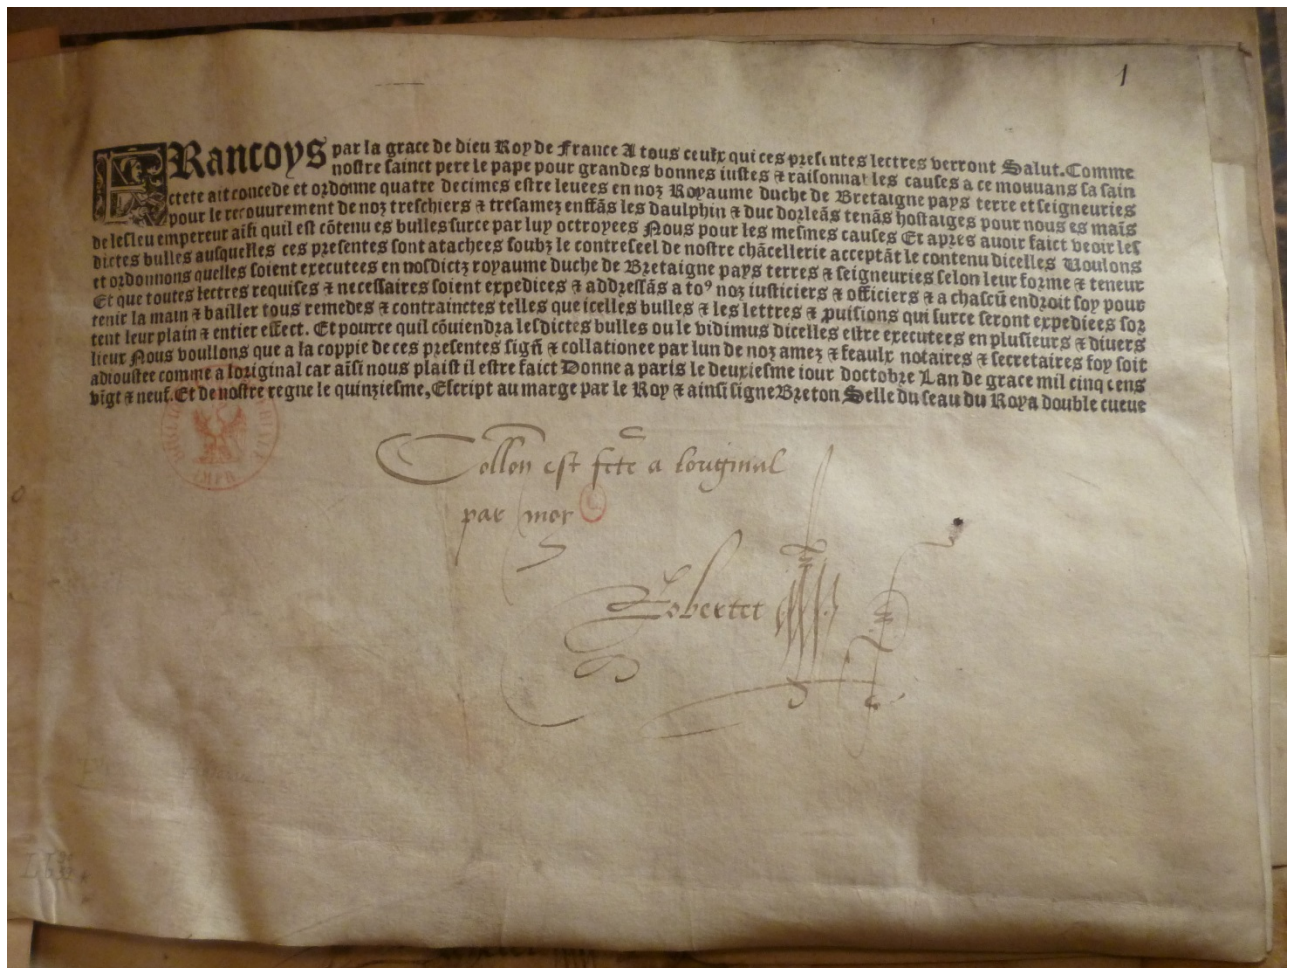 1
FRancoys par la grace de dieu Roy de France A tous ceulx qui ces presentes lectres verront Salut. Comme
nostre sainct pere le pape pour grandes bonnes iustes & raisonnables causes a ce mouuans sa sain
ctete ait concede et ordonne quatre decimes estre leuees en noz Royaume duche de Bretaigne pays terre et seigneuries
pour le recouurement de noz treschiers & tresamez enffãs les daulphin & duc dorleãs tenãs hostaiges pour nous es maĩs
de lesleu empereur aĩsi quil est cõtenu es bulles surce par luy octroyees Nous pour les mesmes causes Et apres auoir faict veoir les
dictes bulles ausquelles ces presentes sont atachees soubz le contreseel de nostre chãcellerie acceptãt le contenu dicelles Voulons
et ordonnons quelles soient executees en nosdictz royaume duche de Bretaigne pays terres & seigneuries selon leur forme & teneur
Et que toutes lectres requises & necessaires soient expedies & addressãs a to⁹ noz iusticiers & officiers & a chascũ endroit soy pour
tenir la main & bailler tous remedes & contrainctes telles que icelles bulles & les lettres & ꝓuisions qui surce seront expediees sor
tent leur plain & entier effect. Et pource quil cõuiendra lesdictes bulles ou le vidimus dicelles estre executees en plusieurs & diuers
lieux Nous voullons que a la coppie de ces presentes sigñ & collationee par lun de noz amez & feaulx notaires & secretaires foy soit
adioustee comme a loriginal car aĩsi nous plaist il estre faict Donne a paris le deuxiesme iour doctobre Lan de grace mil cinq cens
vĩgt & neuf. Et de nostre regne le quinziesme, Escript au marge par le Roy & ainsi signe Breton Selle du seau du Roy a double cueue
Collon est fcte a loriginal
par moy
Robertet